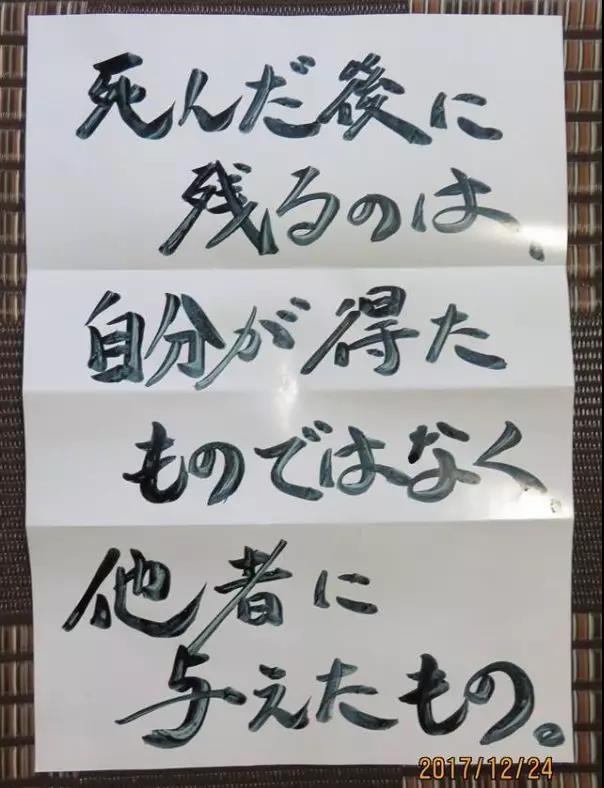 死んだ後に
残るのは、
自分が得た
ものではなく
他者に
与えたもの。
2017/12/24